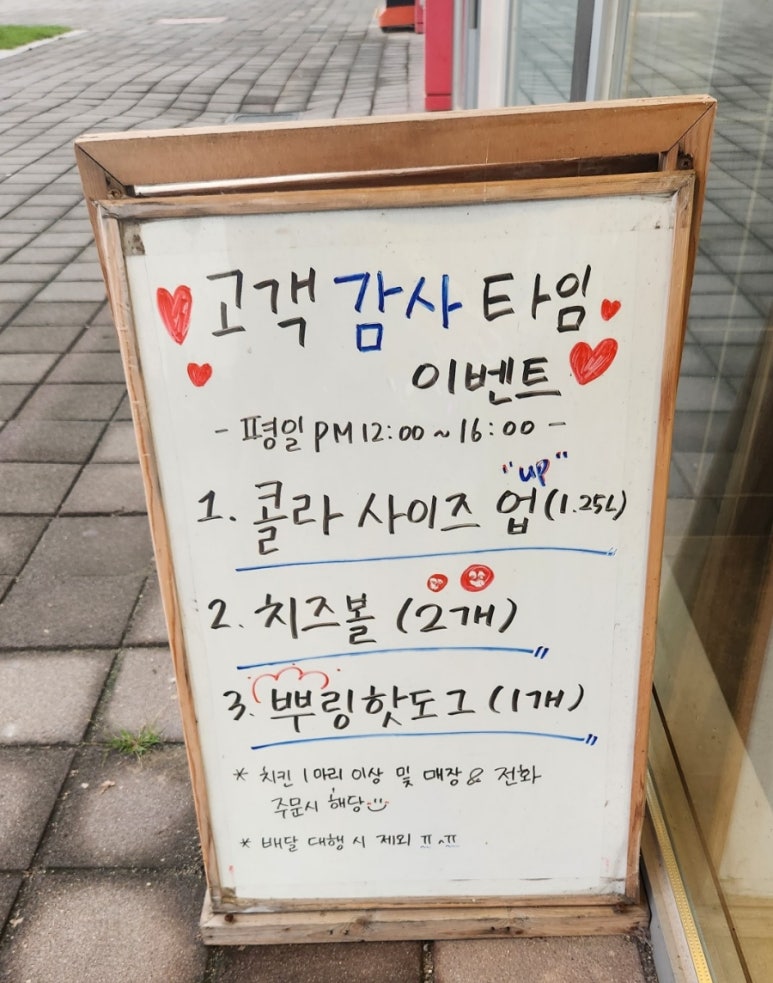 고객 감사 타임
이벤트
- 평일 PM 12:00 ~ 16:00 -
"up"
1. 콜라 사이즈 업 (1.25L)
2. 치즈볼 (2개)
3. 뿌링핫도그 (1개)
* 치킨 1마리 이상 및 매장 & 전화
주문시 해당
* 배달 대행 시 제외 ㅠ^ㅠ